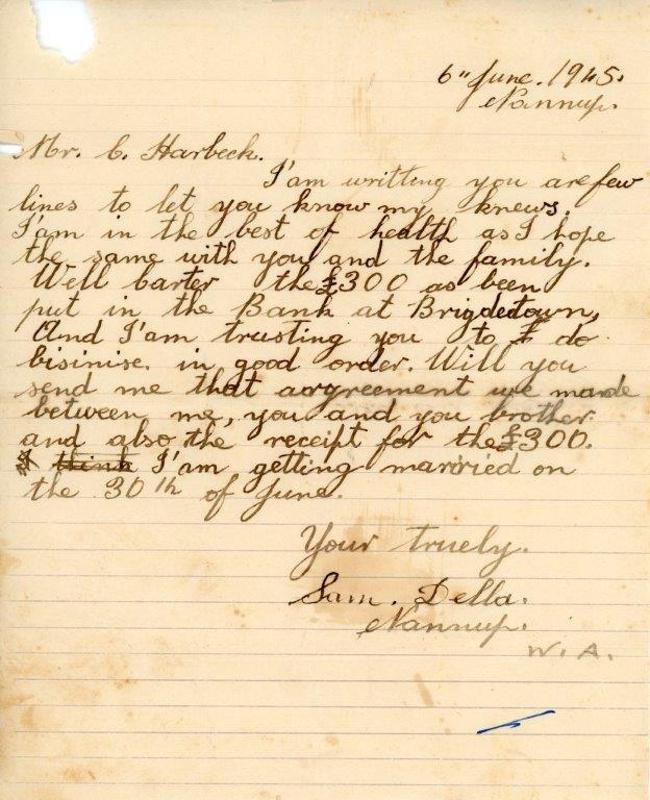 6" June. 1945.
Nannup.
Mr. C. Harbeck.
I'am writting you are few
lines to let you know my knews.
I'am in the best of health as I hope
the same with you and the family.
Well barter the £300 as been
put in the Bank at Brigdetown,
And I'am trusting you to I do
bisinise. in good order. Will you
send me that aorgreement we made
between me, you and you brother.
and also the receipt for the £300.
I think I'am getting marriried on
the 30th of June.
Your truely.
Sam. Della.
Nannup.
W. A.